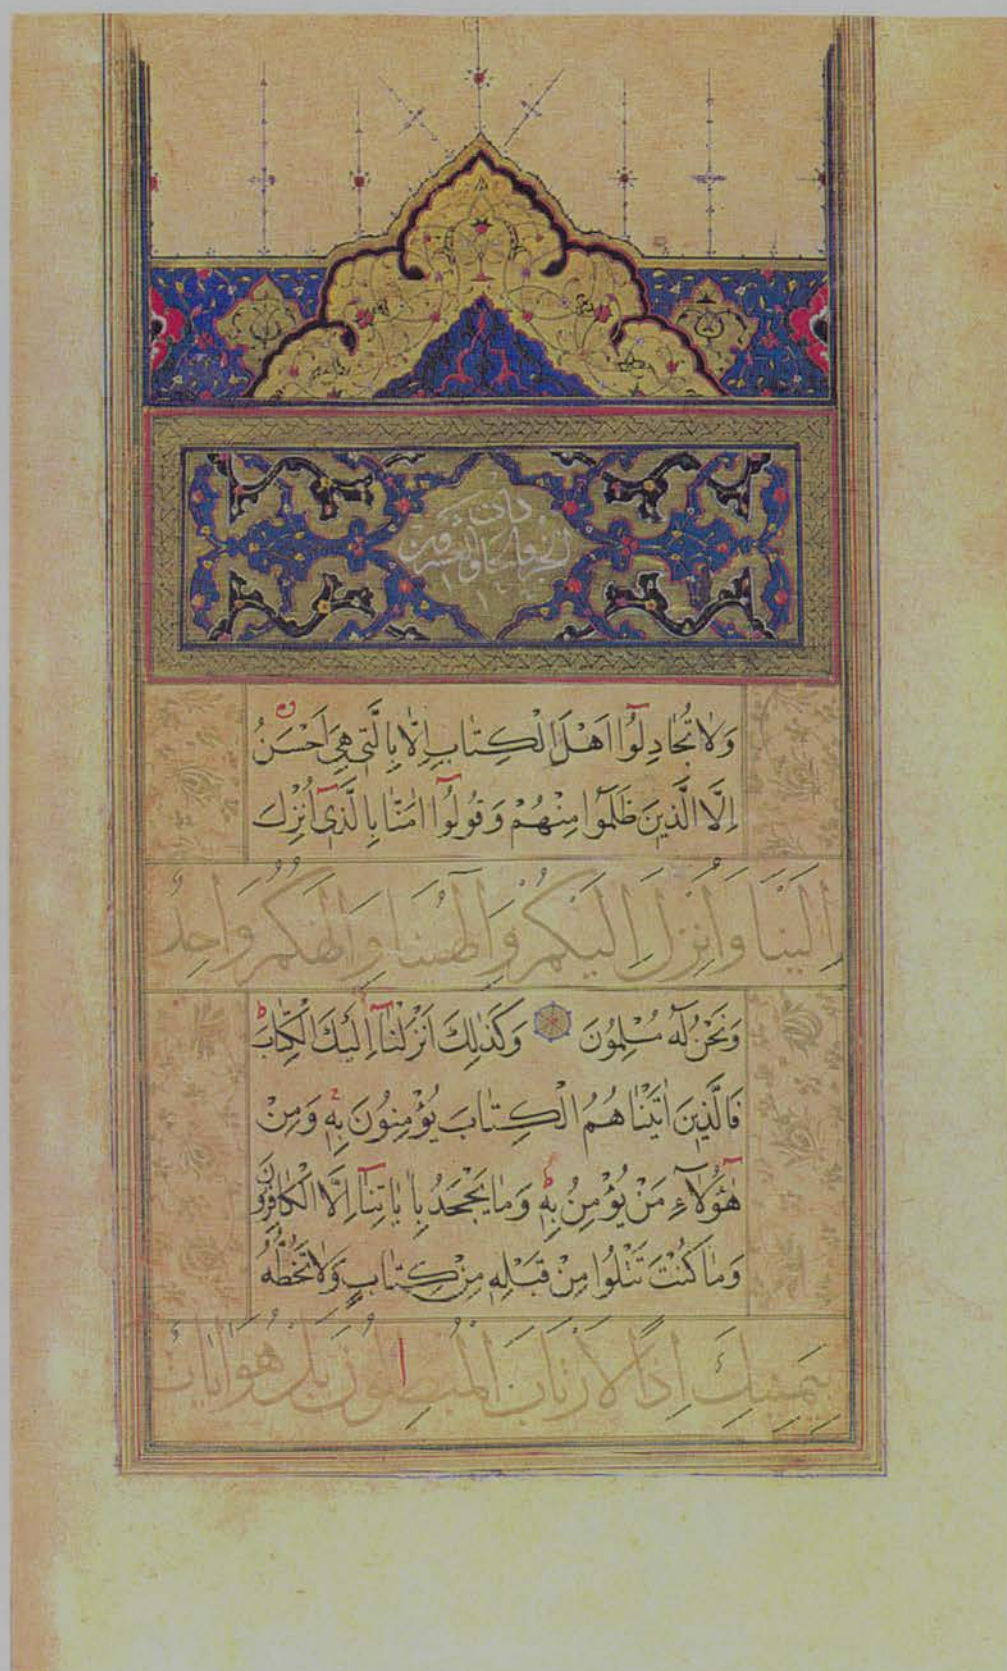 الجزء الحادي والعشرون
وَلَا تُجَادِلُوٓا اَهْلَ الْكِتَابِ اِلَّا بِالَّتٖي هِيَ اَحْسَنُ
اِلَّا الَّذٖينَ ظَلَمُوا مِنْهُمْ وَقُولُوٓا اٰمَنَّا بِالَّذٖٓي اُنْزِلَ
اِلَيْنَا وَاُنْزِلَ اِلَيْكُمْ وَاِلٰهُنَا وَاِلٰهُكُمْ وَاحِدٌ
وَنَحْنُ لَهُ مُسْلِمُونَ وَكَذٰلِكَ اَنْزَلْنَٓا اِلَيْكَ الْكِتَابَ
فَالَّذٖينَ اٰتَيْنَاهُمُ الْكِتَابَ يُؤْمِنُونَ بِهٖ وَمِنْ
هٰٓؤُلَٓاءِ مَنْ يُؤْمِنُ بِهٖ وَمَا يَجْحَدُ بِاٰيَاتِنَٓا اِلَّا الْكَافِرُونَ
وَمَا كُنْتَ تَتْلُوا مِنْ قَبْلِهٖ مِنْ كِتَابٍ وَلَا تَخُطُّهُ
بِيَمٖينِكَ اِذًا لَارْتَابَ الْمُبْطِلُونَ بَلْ هُوَ اٰيَاتٌ